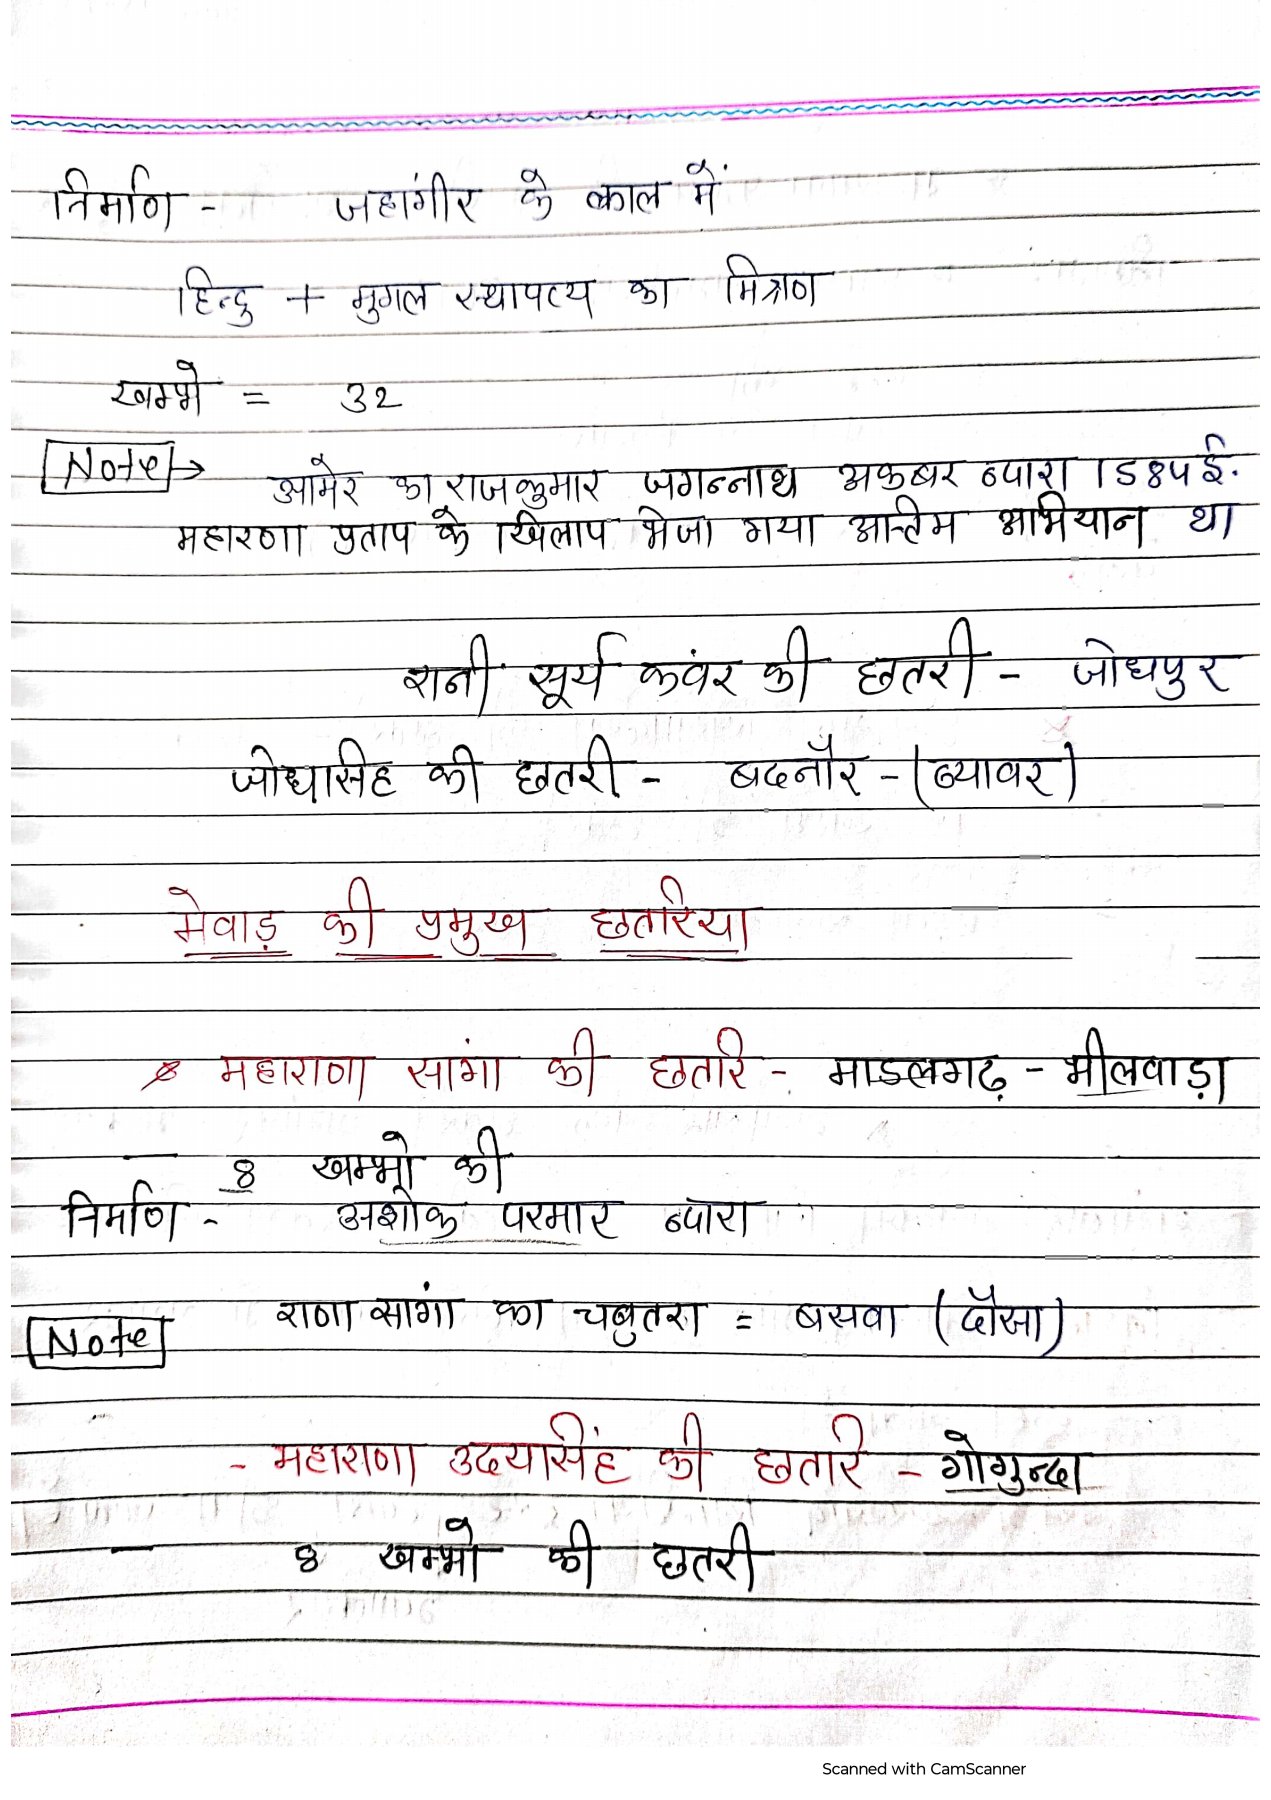 निर्माण - जहांगीर के काल में
हिन्दु + मुगल स्थापत्य का मिश्रण
खम्भे = 32
Note → आमेर का राजकुमार जगन्नाथ अकबर व्दारा 1584 ई.
महारणा प्रताप के खिलाप भेजा गया अन्तिम अभियान था
रानी सूर्य कवंर की छतरी - जोधपुर
जोधासिंह की छतरी - बदनौर - (ब्यावर)
मेवाड़ की प्रमुख छतरिया
महाराणा सांगा की छतरि - माडलगढ़ - भीलवाड़ा
— 8 खम्भो की
निर्माण - अशोक परमार व्दारा
Note राणा सांगा का चबुतरा = बसवा (दौसा)
- महाराणा उदयसिंह की छतरि - गोगुन्दा
— 8 खम्भो की छतरी
Scanned with CamScanner